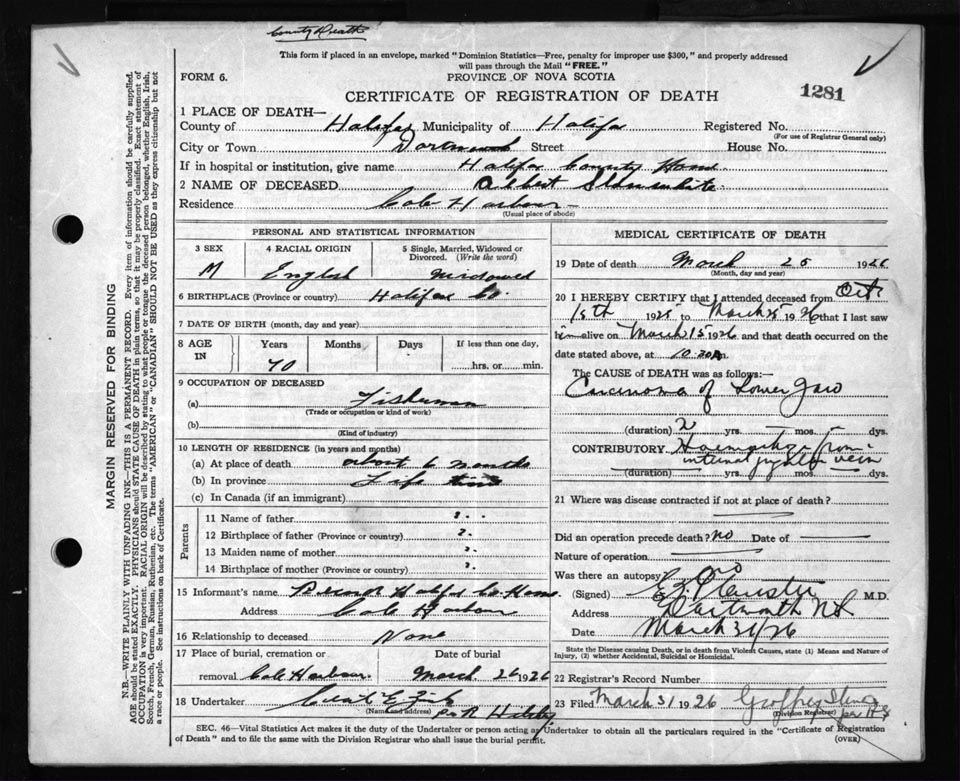 County Death
This form if placed in an envelope, marked "Dominion Statistics—Free, penalty for improper use $300," and properly addressed
will pass through the Mail "FREE."
FORM 6.
PROVINCE OF NOVA SCOTIA
CERTIFICATE OF REGISTRATION OF DEATH
1281
1 PLACE OF DEATH—
County of Halifax Municipality of Halifax Registered No.
(For use of Registrar General only)
City or Town Dartmouth Street House No.
If in hospital or institution, give name Halifax County Home
2 NAME OF DECEASED Albert Slaunwhite
Residence Cole Harbour
(Usual place of abode)
PERSONAL AND STATISTICAL INFORMATION
3 SEX 4 RACIAL ORIGIN 5 Single, Married, Widowed or
Divorced. (Write the word)
M English Widowed
6 BIRTHPLACE (Province or country) Halifax Co.
7 DATE OF BIRTH (month, day and year)
8 AGE
IN
Years Months Days If less than one day,
70 hrs. or min.
9 OCCUPATION OF DECEASED
(a) Fisherman
(Trade or occupation or kind of work)
(b)
(Kind of industry)
10 LENGTH OF RESIDENCE (in years and months)
(a) At place of death about 6 months
(b) In province Life time
(c) In Canada (if an immigrant)
Parents
11 Name of father ?
12 Birthplace of father (Province or country) ?
13 Maiden name of mother ?
14 Birthplace of mother (Province or country) ?
15 Informant's name Halifax Co. Home
Address Cole Harbour
16 Relationship to deceased None
17 Place of burial, cremation or Date of burial
removal Cole Harbour March 26 1926
18 Undertaker
(Name and address)
MEDICAL CERTIFICATE OF DEATH
19 Date of death March 25 1926
(Month, day and year)
20 I HEREBY CERTIFY that I attended deceased from Oct
15th 1925 to March 25 1926 that I last saw
him alive on March 15 1926 and that death occurred on the
date stated above, at 10.30
The CAUSE of DEATH was as follows:—
Carcinoma of Lower Jaw
(duration) 2 yrs. mos. dys.
CONTRIBUTORY Haemorrhage from
internal jugular vein
(duration) yrs. mos. dys.
21 Where was disease contracted if not at place of death?
Did an operation precede death? No Date of
Nature of operation
Was there an autopsy? No
(Signed) M.D.
Address Dartmouth NS
Date March 31/26
State the Disease causing Death, or in death from Violent Causes, state (1) Means and Nature of
Injury, (2) whether Accidental, Suicidal or Homicidal.
22 Registrar's Record Number
23 Filed March 31 1926
(Division Registrar)
SEC. 46—Vital Statistics Act makes it the duty of the Undertaker or person acting as Undertaker to obtain all the particulars required in the "Certificate of Registration
of Death" and to file the same with the Division Registrar who shall issue the burial permit.
(OVER)
MARGIN RESERVED FOR BINDING
N.B.—WRITE PLAINLY WITH UNFADING INK—THIS IS A PERMANENT RECORD. Every item of information should be carefully supplied.
AGE should be stated EXACTLY. PHYSICIANS should STATE CAUSE OF DEATH in plain terms, so that it may be properly classified. Exact statement of
OCCUPATION is very important. RACIAL ORIGIN will be described by stating to what people or tongue the deceased person belonged, whether English, Irish,
Scotch, French, German, Russian, Ruthenian, etc. The terms "AMERICAN" or "CANADIAN" SHOULD NOT BE USED as they express citizenship but not
a race or people. See instructions on back of Certificate.